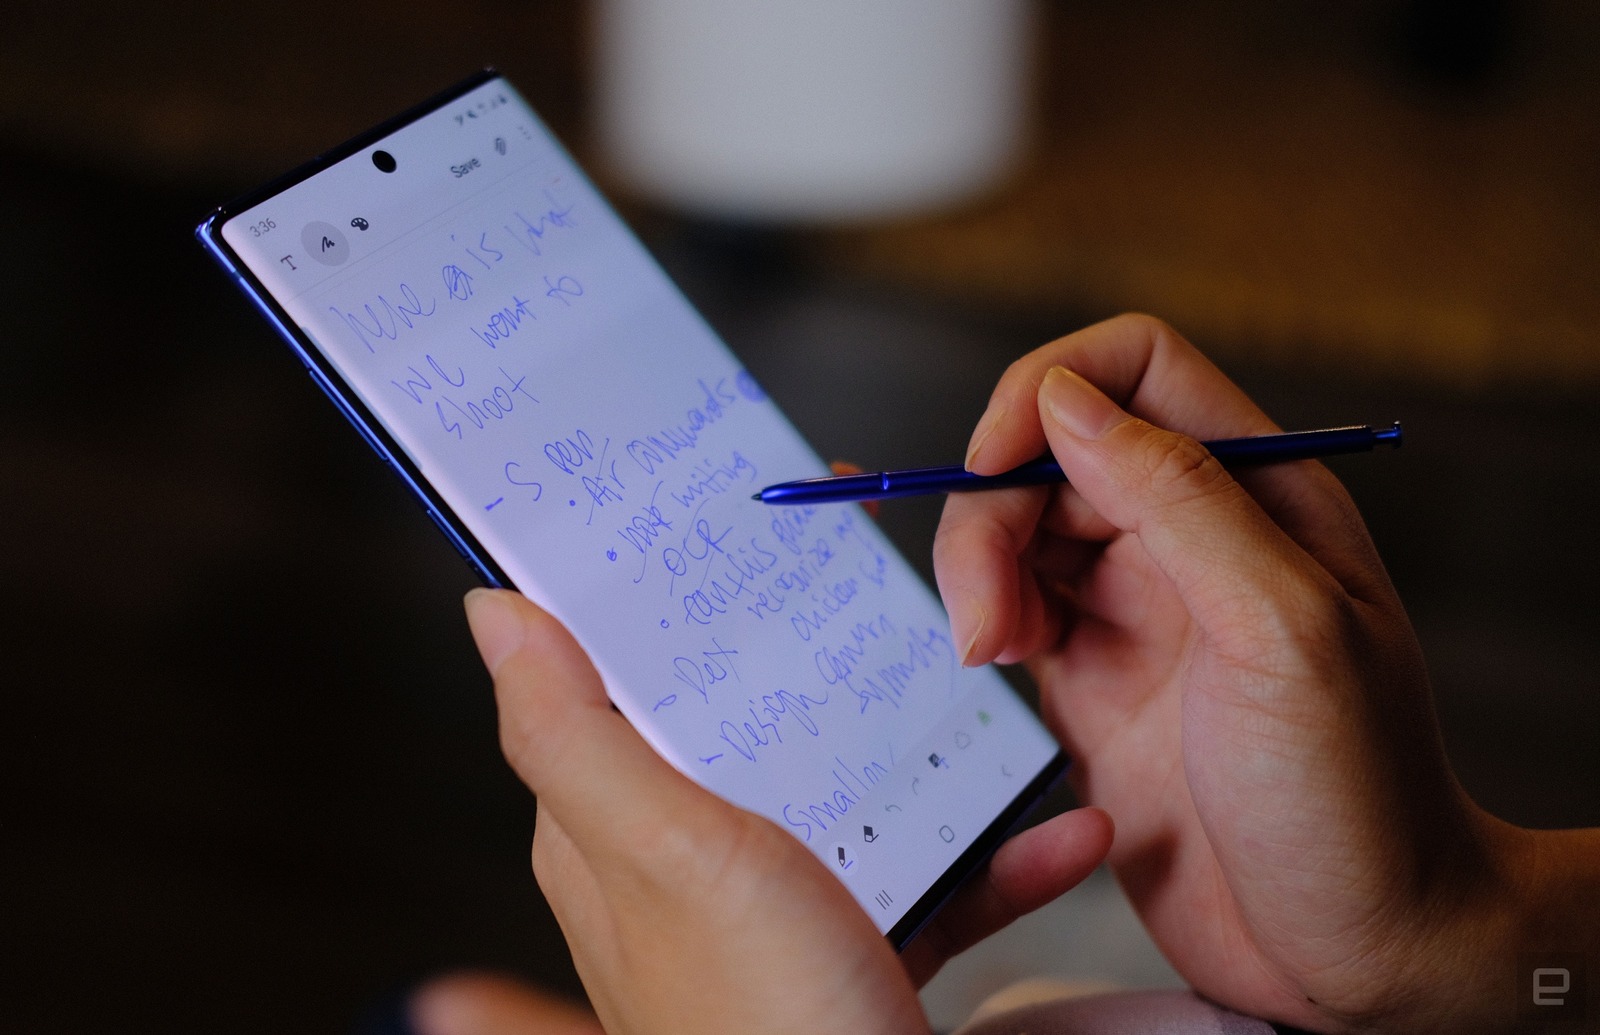 3:36
Save
T
here is what
we want to
shoot
- S Pen
• Air commands
• note writing
OCR
• Can this
recognize my
chicken
- Dex
- Design Camera
Symmetry
Smaller/